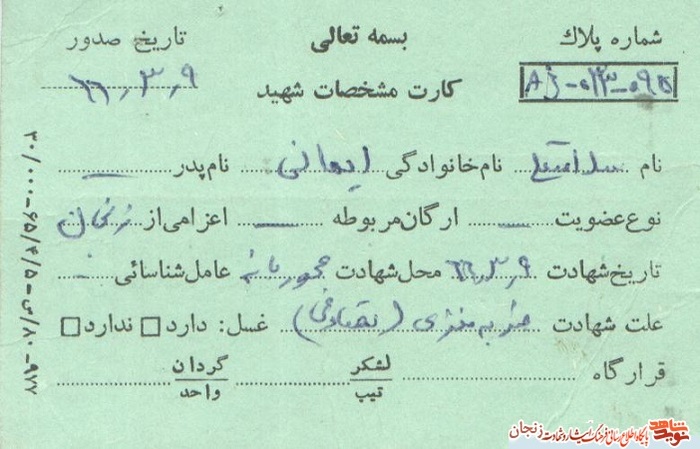 شماره پلاك بسمه تعالی تاریخ صدور
کارت مشخصات شهید ۶۶٫۳٫۹
نام نام‌خانوادگی ایمانی نام پدر
نوع عضویت ارگان مربوطه اعزامی از زنجان
تاریخ شهادت ۶۶٫۳٫۹ محل شهادت عامل شناسائی
علت شهادت ضربه مغزی (تصادفی) غسل: دارد ندارد
قرارگاه لشکر تیپ گردان واحد
۳۰/۰۰۰-۶۵/۴/۵-ص/۸۰-۹۷۷
نوید شاهد پایگاه اطلاع رسانی فرهنگ ایثار و شهادت زنجان